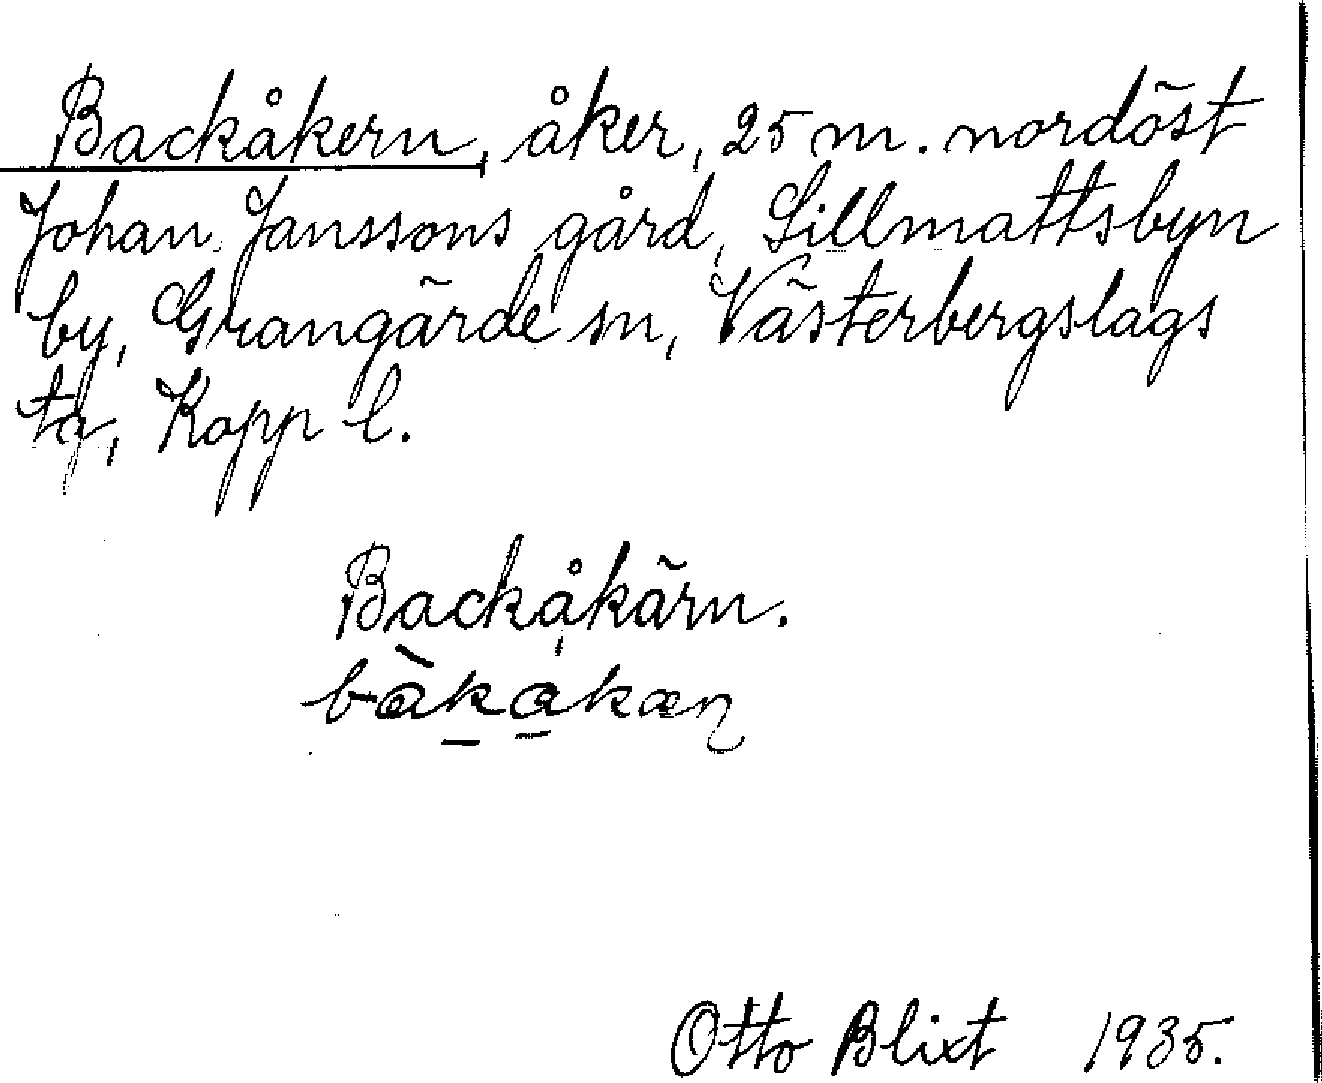 Backåkern, åker, 25 m. nordöst
Johan Janssons gård, Lillmattsbyn
by, Grangärde sn, Västerbergslags
tg, Kopp l.
Backåkärn.
Otto Blixt 1935.